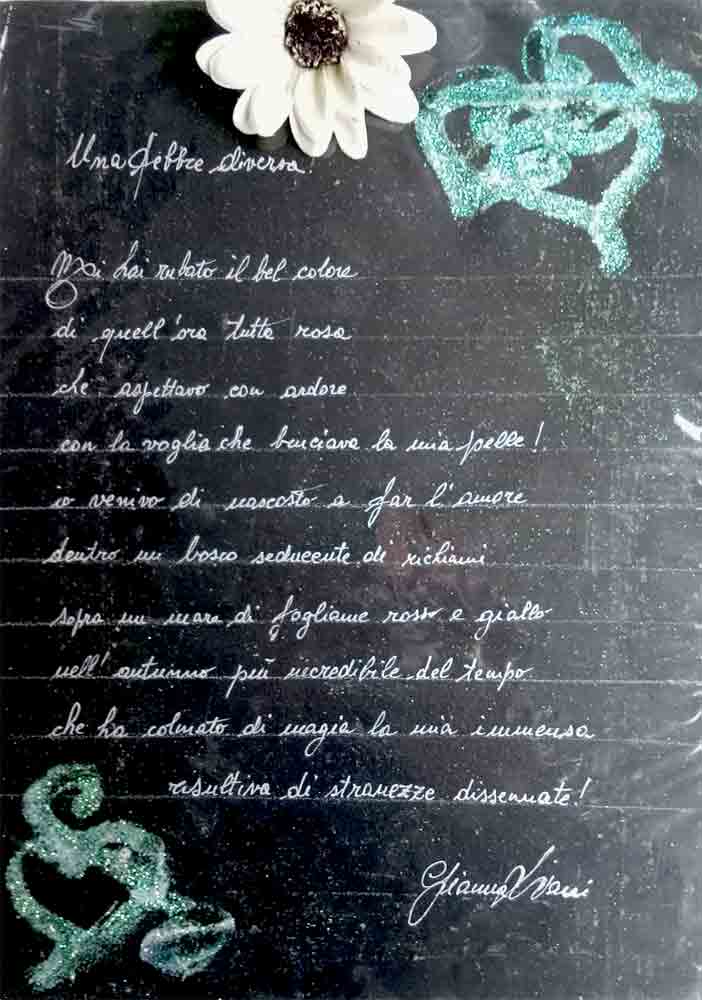 Una febbre diversa!
Mi hai rubato il bel colore
di quell'ora tutta rosa
che aspettavo con ardore
con la voglia che bruciava la mia pelle!
io venivo di nascosto a far l'amore
dentro un bosco seducente di richiami
sopra un mare di fogliame rosso e giallo
nell'autunno più incredibile del tempo
che ha colmato di magia la mia immensa
di stranezze dissennate!